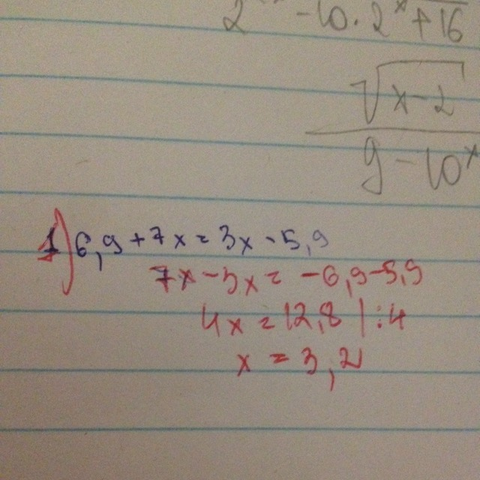 - 10 · 2ˣ + 16
√x-2
9 - 10ˣ
1) 6,9 + 7x = 3x - 5,9
7x - 3x = -6,9 - 5,9
4x = 12,8 | : 4
x = 3,2